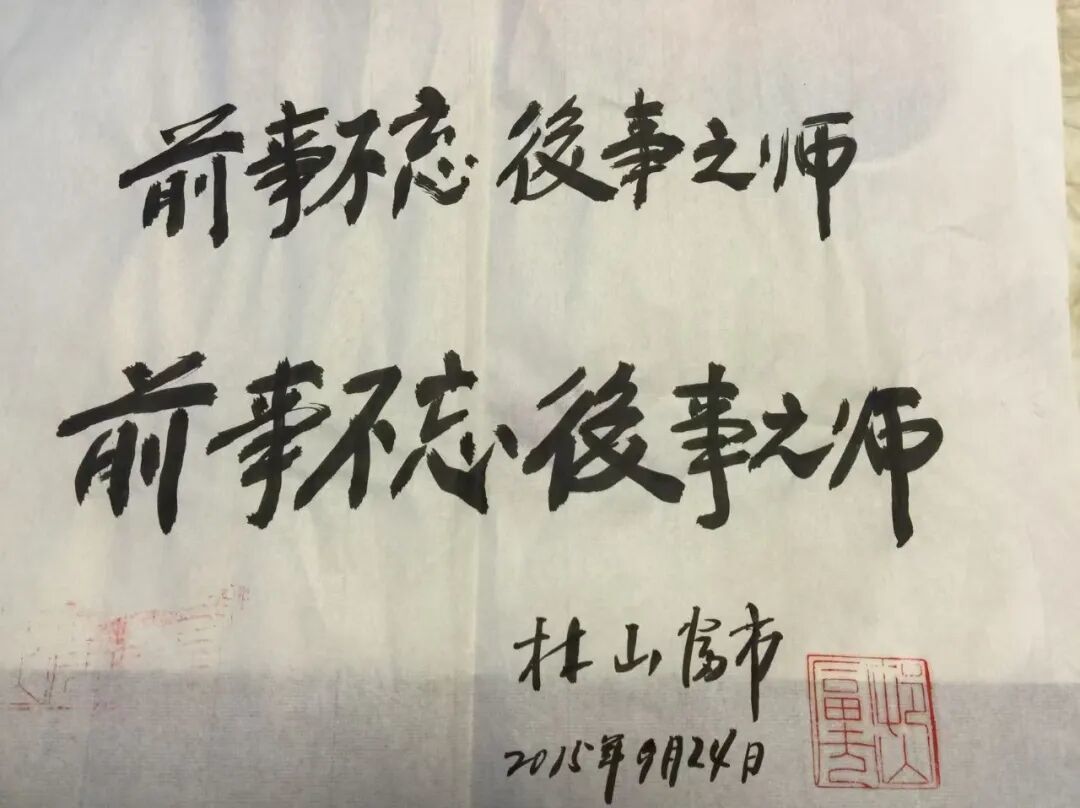 前事不忘 後事之师
前事不忘 後事之师
村山富市
2015年9月24日